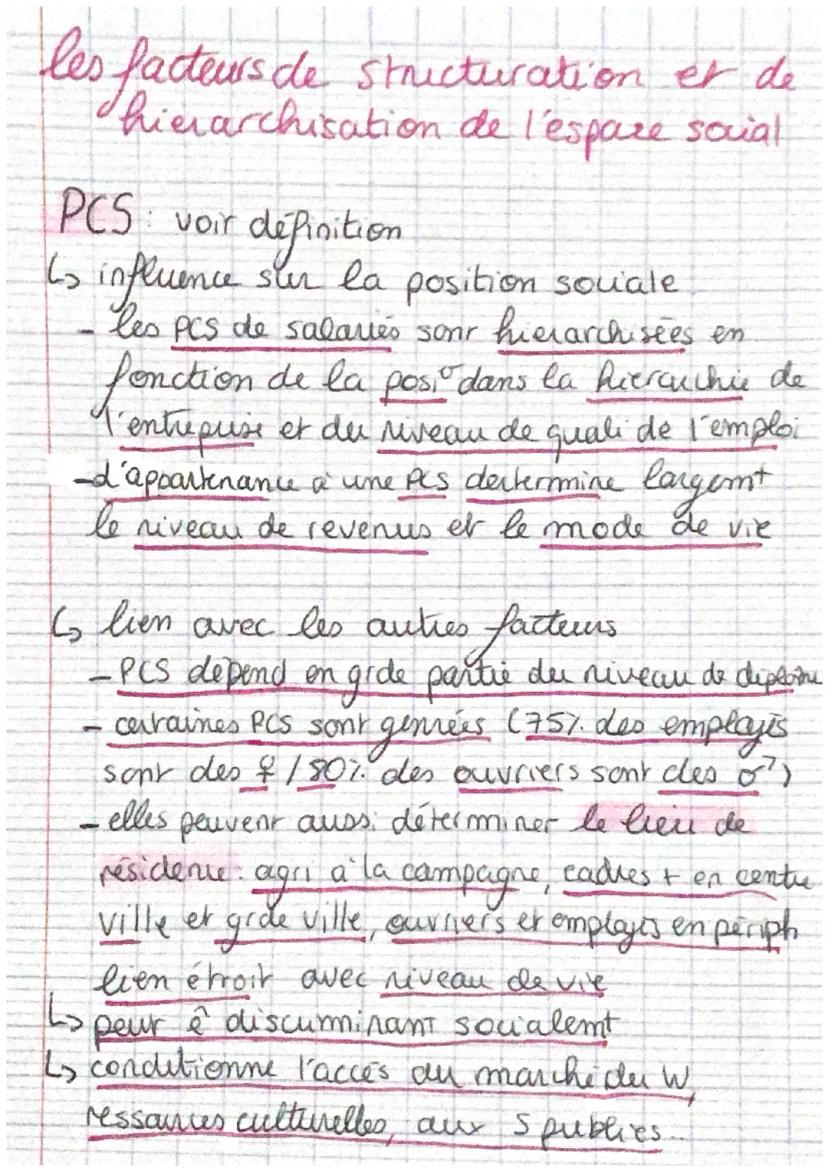 les facteurs de structuration et de
hierarchisation de l'espace social
PCS : voir définition
↳ influence sur la position sociale
- les PCS de salariés sont hierarchisées en
fonction de la posi° dans la hierarchie de
l'entreprise et du niveau de quali de l'emploi
- l'appartenance à une PCS determine largemt
le niveau de revenus et le mode de vie
↳ lien avec les autres facteurs
- PCS dépend en grde partie du niveau de diplôme
- certaines PCS sont genrées (75% des employés
sont des ♀ / 80% des ouvriers sont des ♂)
- elles peuvent aussi déterminer le lieu de
résidence : agri à la campagne, cadres + en centre
ville et grde ville, ouvriers et employés en périph
lien étroit avec niveau de vie
↳ peut ê discriminant socialemt
↳ conditionne l'accès au marché du W,
ressources culturelles, aux S publics...